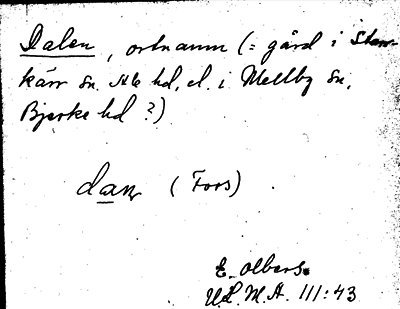 Dalen, ortnamn (= gård i Stenkärr
sn, Ale hd, el. i Mellby sn,
Bjerke hd ?)
dan (Fors)
E. Olbers.
U.L.M.A. 111:43